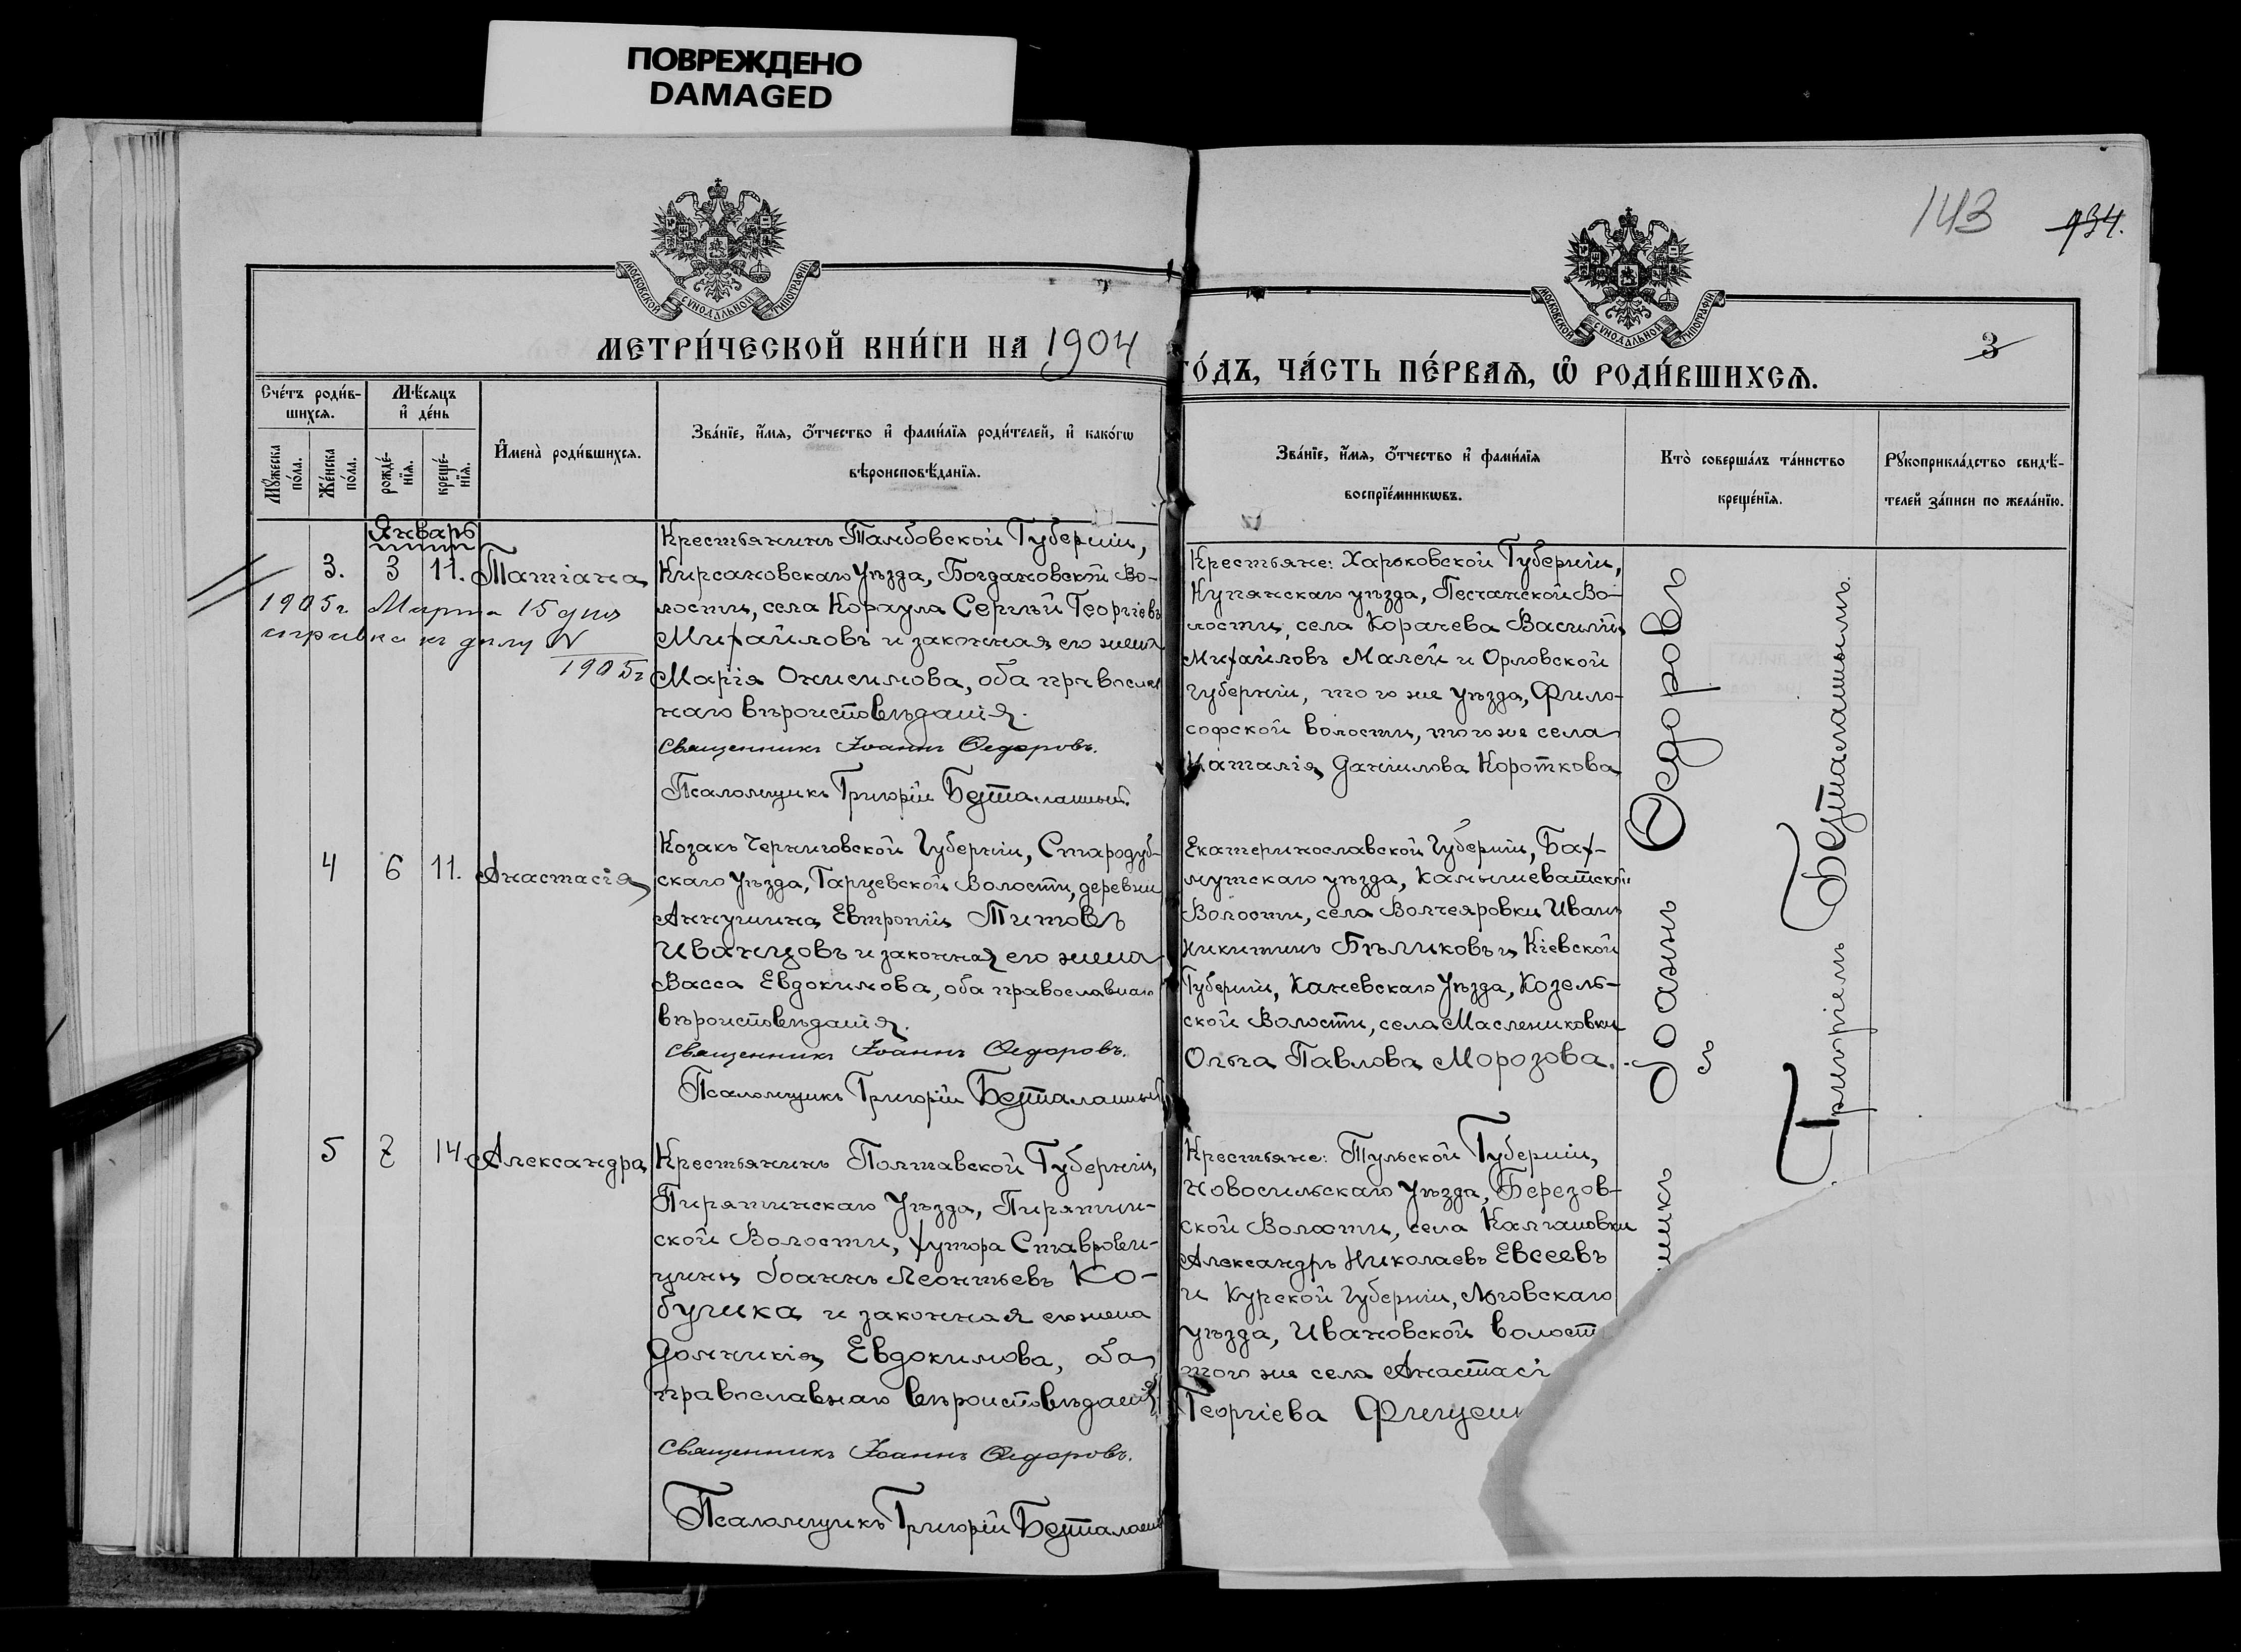 ПОВРЕЖДЕНО
DAMAGED
143 134.
МОСКОВСКОЙ СѴНОДАЛЬНОЙ ТИПОГРАФІИ
МОСКОВСКОЙ СѴНОДАЛЬНОЙ ТИПОГРАФІИ
3
МЕТРИ́ЧЕСКОЙ КНИ́ГИ НА 1904
ГО́ДЪ, ЧА́СТЬ ПЕ́РВАЯ, Ѡ РОДИ́ВШИХСЯ.
Сче́тъ роди́в-
шихся.
Мꙋжеска
по́ла.
Же́нска
по́ла.
Мѣ́сяцъ
и҆ де́нь
рожде́-
нїя.
креще́-
нїя.
И҆мена̀ роди́вшихся.
Зва́нїе, и҆́мя, ѻ҆́тчество и҆ фами́лїя роди́телей, и҆ како́гѡ
вѣроисповѣ́данїя.
Зва́нїе, и҆́мя, ѻ҆́тчество и҆ фами́лїя
воспрїе́мникѡвъ.
Кто̀ соверша́лъ та́инство
креще́нїя.
Рꙋкоприкла́дство свидѣ́-
телей за́писи по жела́нїю.
Январь
3. 3 11. Татіана
1905 г Марта 15 дня
справка къ делу N
1905 г
Крестьянинъ Тамбовской Губерніи,
Кирсановскаго Уѣзда, Богдановской Во-
лости, села Кораула Сергѣй Георгіевъ
Михайловъ и законная его жена
Марія Онисимова, оба православ
наго вѣроисповѣданія.
Священникъ Іоаннъ Ѳедоровъ.
Псаломщикъ Григорій Безталанный.
Крестьяне: Харьковской Губерніи,
Купянскаго уѣзда, Песчанской Во-
лости, села Корачева Василій
Михайловъ Малей и Орловской
Губерніи, того же уѣзда, Фило-
софской волости, того же села
Наталія Даніилова Короткова
4 6 11. Анастасія
Козакъ Черниговской Губерніи, Стародуб-
скаго Уѣзда, Гарцевской Волости, деревни
Аннушина Евтропій Титовъ
Иванцовъ и законная его жена
Васса Евдокимова, оба православнаго
вѣроисповѣданія.
Священникъ Іоаннъ Ѳедоровъ.
Псаломщикъ Григорій Безталанный
Екатеринославской Губерніи, Бах-
мутскаго уѣзда, Камышеватской
Волости, села Волчеяровки Иванъ
Никитинъ Бѣликовъ и Кіевской
Губерніи, Каневскаго Уѣзда, Козель-
ской Волости, села Маслениковки
Ольга Павлова Морозова.
5 7 14 Александра
Крестьянинъ Полтавской Губерніи,
Пирятинскаго Уѣзда, Пирятин-
ской Волости, хутора Ставрови-
щины Іоаннъ Леонтьевъ Ко-
булика и законная его жена
Домникія Евдокимова, оба
православнаго вѣроисповѣданія.
Священникъ Іоаннъ Ѳедоровъ.
Псаломщикъ Григорій Безталанн
Крестьяне: Тульской Губерніи,
Новосильскаго Уѣзда, Березов-
ской Волости, села Калгановки
Александръ Николаевъ Евсеевъ
и Курской Губерніи, Льговскаго
уѣзда, Ивановской волост
того же села Анастасі
Георгіева
никъ Іоаннъ Ѳедоровъ
съ
Григоріемъ Безталаннымъ